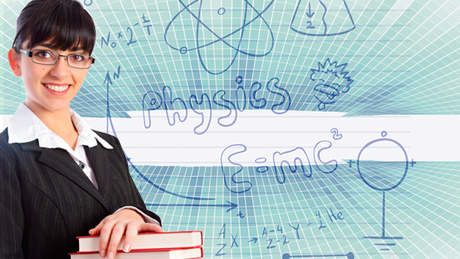 N₀ × 2^(-t/T)
N
Physics
E=mc²
t
A/Z X → A-4/Z-2 Y + 4/2 He